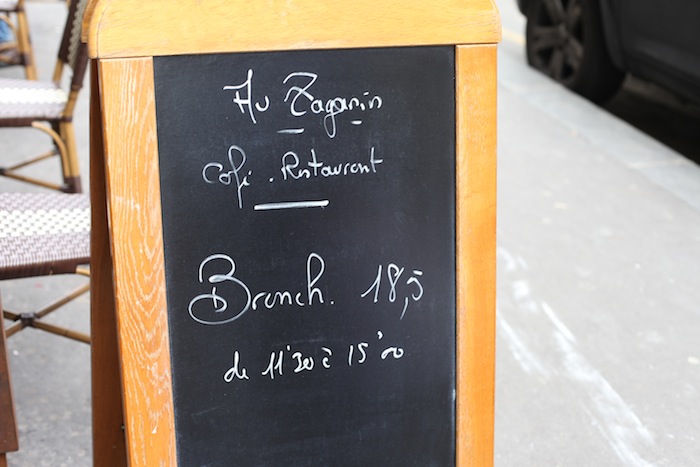 Au Zaganin
Café. Restaurant
Brunch. 18,5
de 11'30 à 15'00